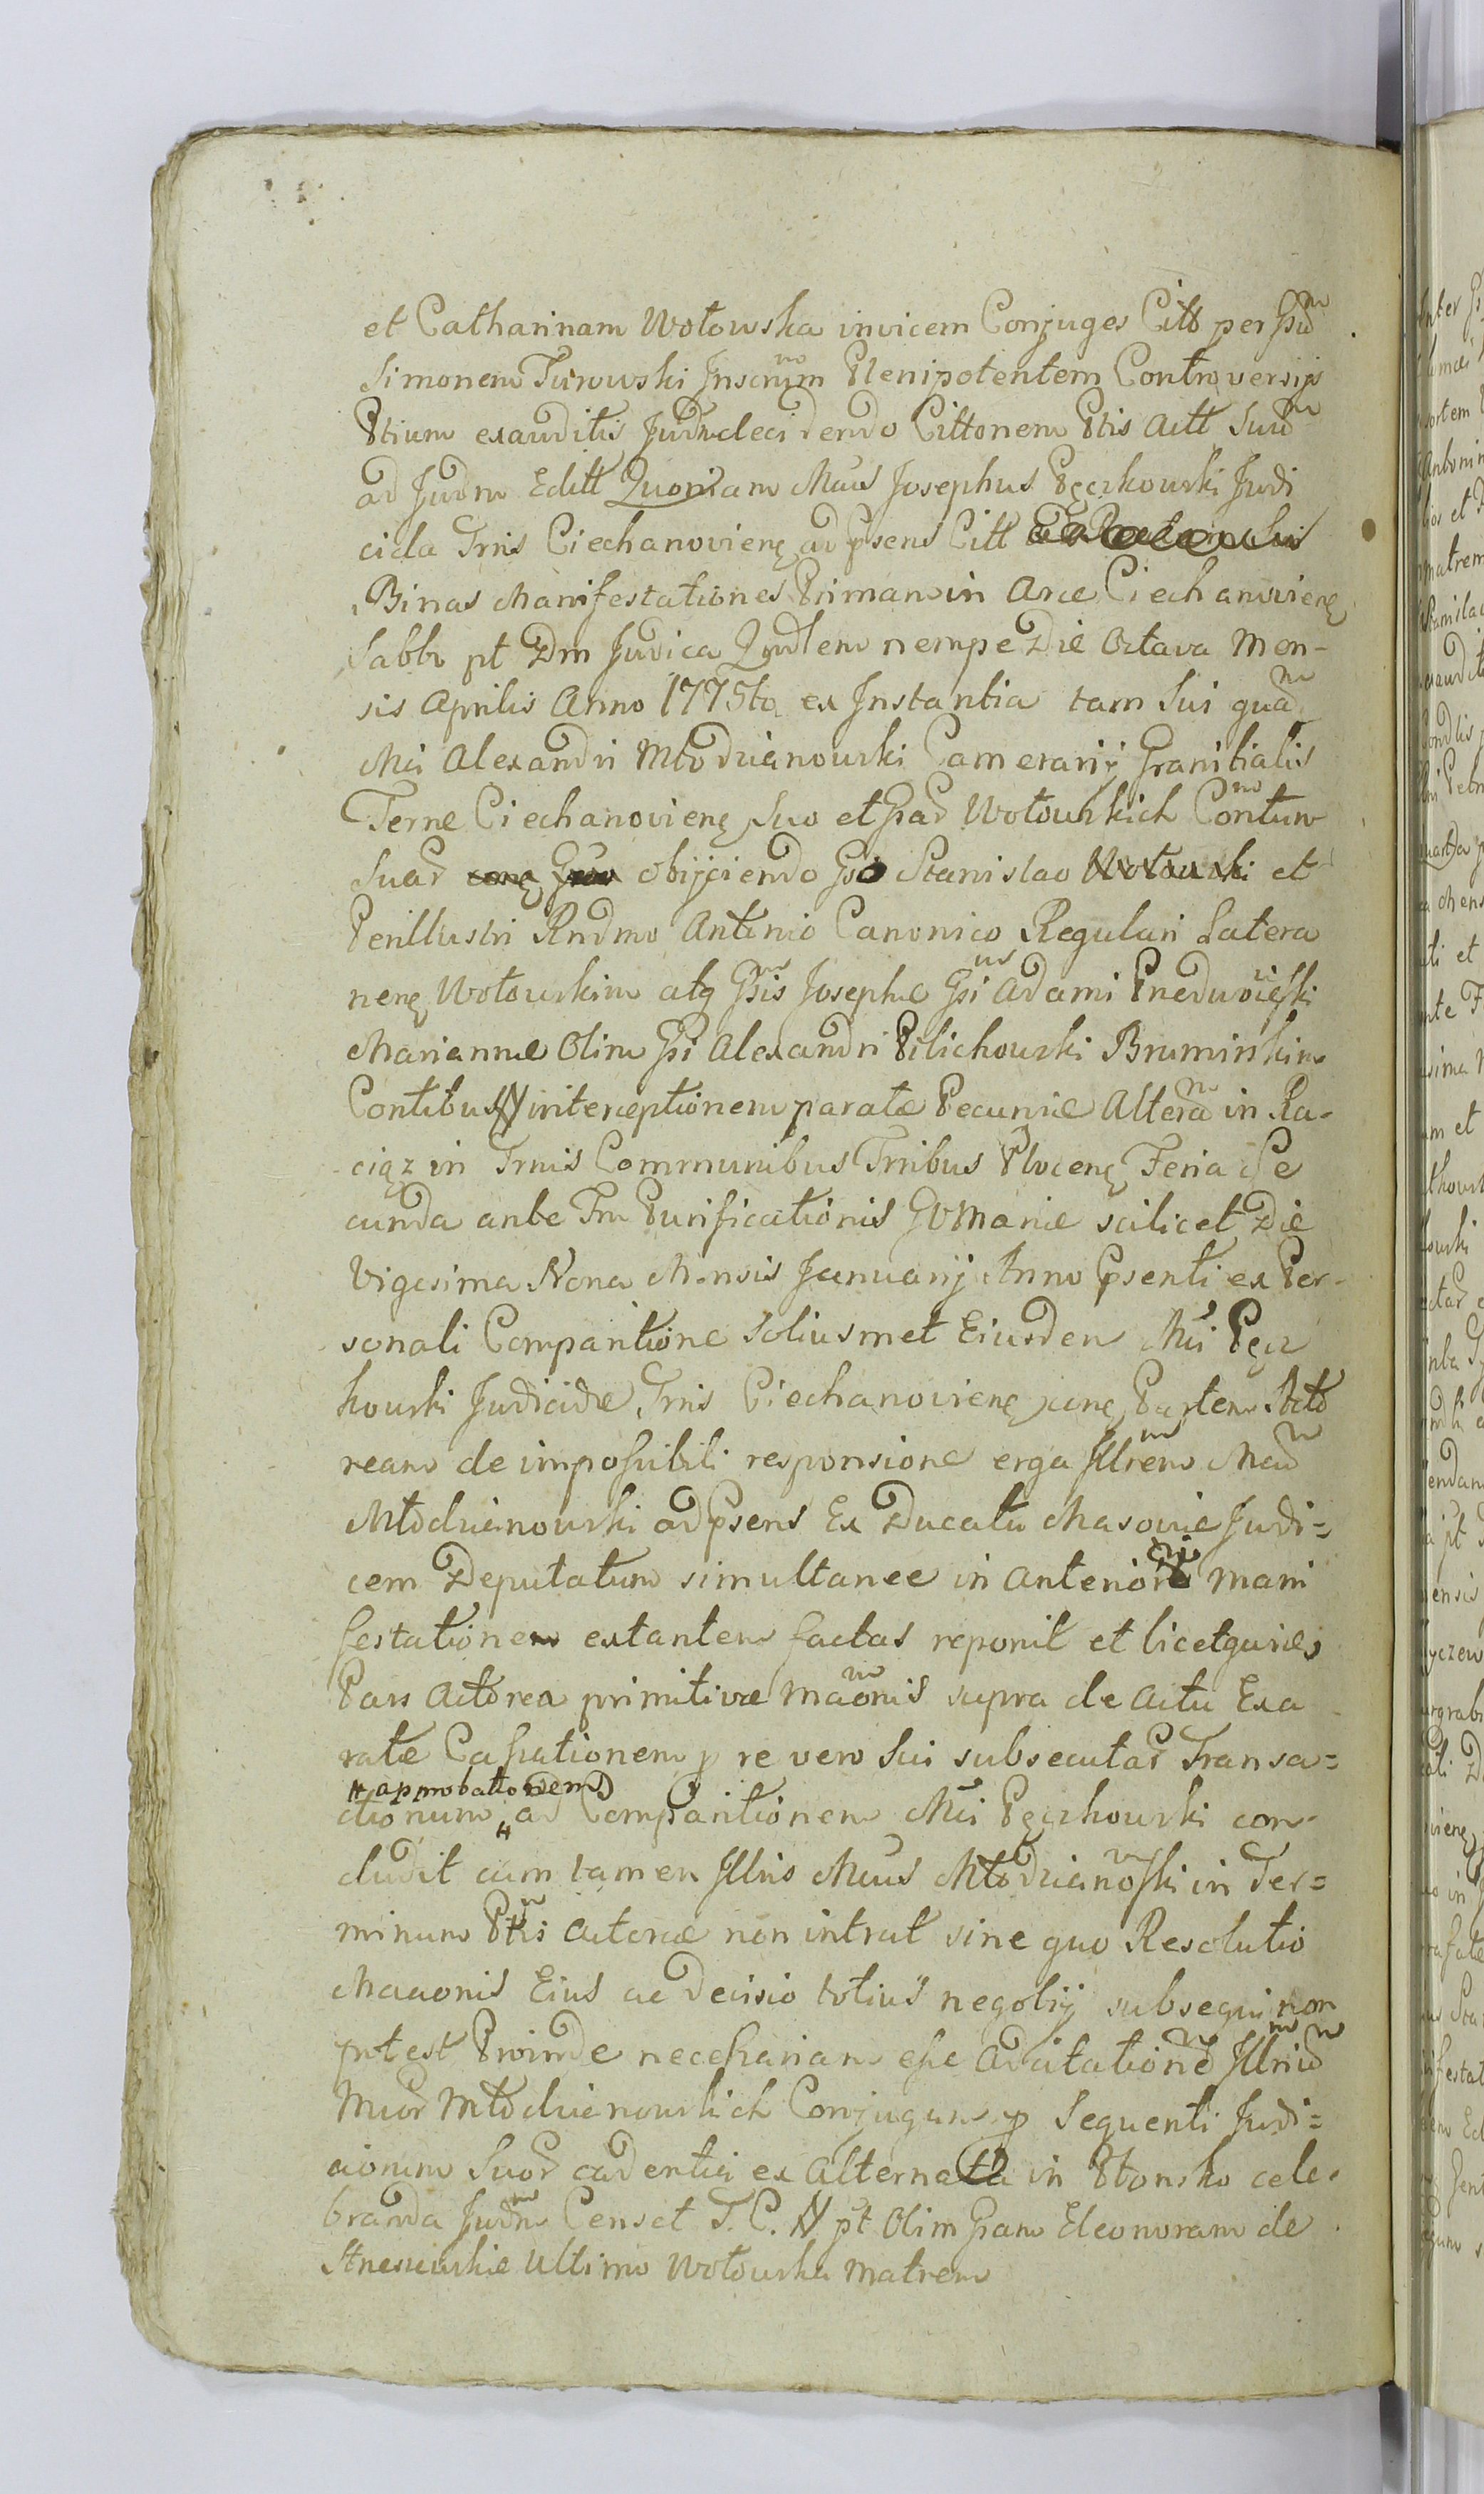 et Catharinam Wołowska invicem Conjuges Citt per Gsũ
Simonem Turowski Inscrum Plenipotentem Controversijs
Ptium exauditis Judm decidendo Cittonem Ptis Actt Suũ
ad Judm Editt Quoniam Mcus Josephus Pęczkowski Judi
cida Trris Ciechanovienę ad psens Citt
Binas Manifestationes Primam in Arce Ciechanovienę
Sabbo pt Dm Judica Qudlem nempe Die Octava Men-
sis Aprilis Anno 1775to ex Instantia tam Sui quã
Mci Alexandri Młodzianowski Camerarij Granitialis
Terrae Ciechanovienę Suo et Gsad Wołowskich Contum
Suad obijciendo Gso Stanislao Wołowski et
Perillustri Rndmo Antonio Canonico Regulari Latera
nenę Wołowskim atq Gsis Josephæ Gsi Adami
Mariannæ Olim Gsi Alexandri Pilichowski Brumirskim
Contibus interceptionem paratæ Pecuniæ Alterã in Ra-
ciąz in Trmis Communibus Trribus Plocenę Feria Se
cunda ante Fm Purificationis GVMariæ scilicet Die
Vigesima Nona Mensis Januarij Anno Psenti ex Per-
sonali Comparitione Soliusmet Eiusdem Mci Pęcz
kowski Judicidæ Trris Ciechanovienę Partem Acto
ream de impossibili responsione erga Illrem Mcũ
Młodzianowski ad psens Ex Ducatu Masoviæ Judi=
cem Deputatum simultanee in Anteriori mani
festatione extantem factas reponit et licet
Pars Actorea primitivæ Maõnis supra de Actu Exa
ratæ Cassationem p re vero Sui subsecutad Transa=
# approbattonem
ctionum # ad Comparitionem Mci Pęczkowski con-
cludit cum tamen Illris Mcus Młodzianoski in Ter=
minum Ptis Actoreæ non intrat sine quo Resolutio
Maaonis Eius ac Decisio totius negotij subsequi non
potest Proinde necessariam esse Adcitationẽ Illriũ
Mcor Młodzianowskich Conjugum p Sequenti Judi=
ciorum Suor cadentia ex Alternata in Płonsko cele-
branda Judm Censet T. C. N pt Olim Gsam Eleonoram de
ultimo Wołowska Matrem